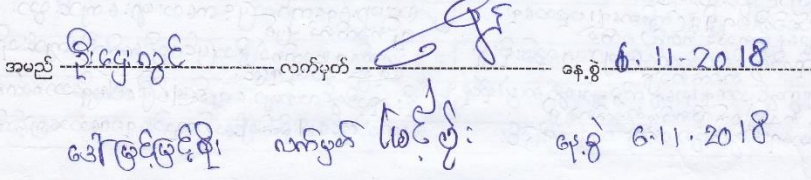 အမည် ဦးဌေးလွင် လက်မှတ် နေ့စွဲ 6.11.2018
ဒေါ်မြင့်မြင့်စိုး လက်မှတ် နေ့စွဲ 6.11.2018